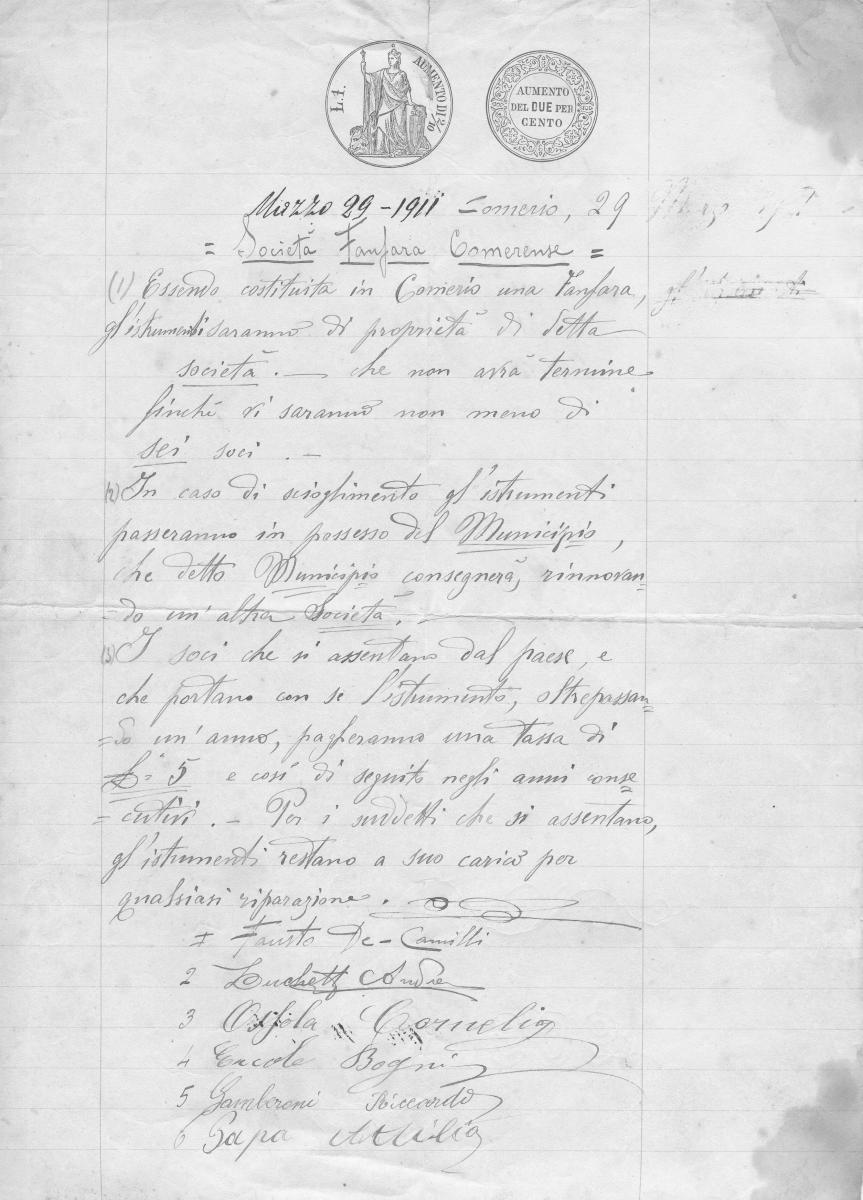 L. 1.
AUMENTO DI 2/10
AUMENTO
DEL DUE PER
CENTO
Marzo 29 - 1911 Comerio, 29
= Società Fanfara Comerense =
(1) Essendo costituita in Comerio una Fanfara,
gl'istrumenti saranno di proprietà di detta
società. — che non avrà termine
finché vi saranno non meno di
sei soci . —
(2) In caso di scioglimento gl'istrumenti
passeranno in possesso del Municipio,
che detto Municipio consegnerà, rinnovan=
=do un'altra Società. —
(3) I soci che si assentano dal paese, e
che portano con se l'istrumento, oltrepassan=
=do un'anno, pagheranno una tassa di
L= 5 e così di seguito negli anni conse=
=cutivi. — Per i suddetti che si assentano,
gl'istrumenti restano a suo carico per
qualsiasi riparazione.
1 Fausto De-Camilli
2 Luchetti Andrea
3 Ossola Cornelio
4 Ercole Bogni
5 Gamberoni Riccardo
6 Papa Attilio